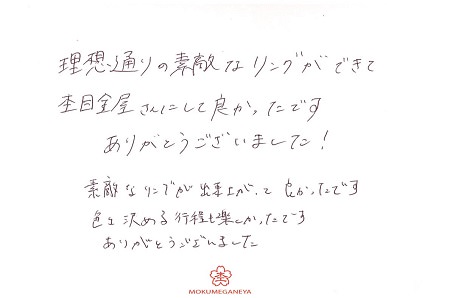 理想通りの素敵なリングができて
杢目金屋さんにして良かったです
ありがとうございました!
素敵なリングが出来上がって良かったです
色々決める行程も楽しかったです
ありがとうございました
MOKUMEGANEYA